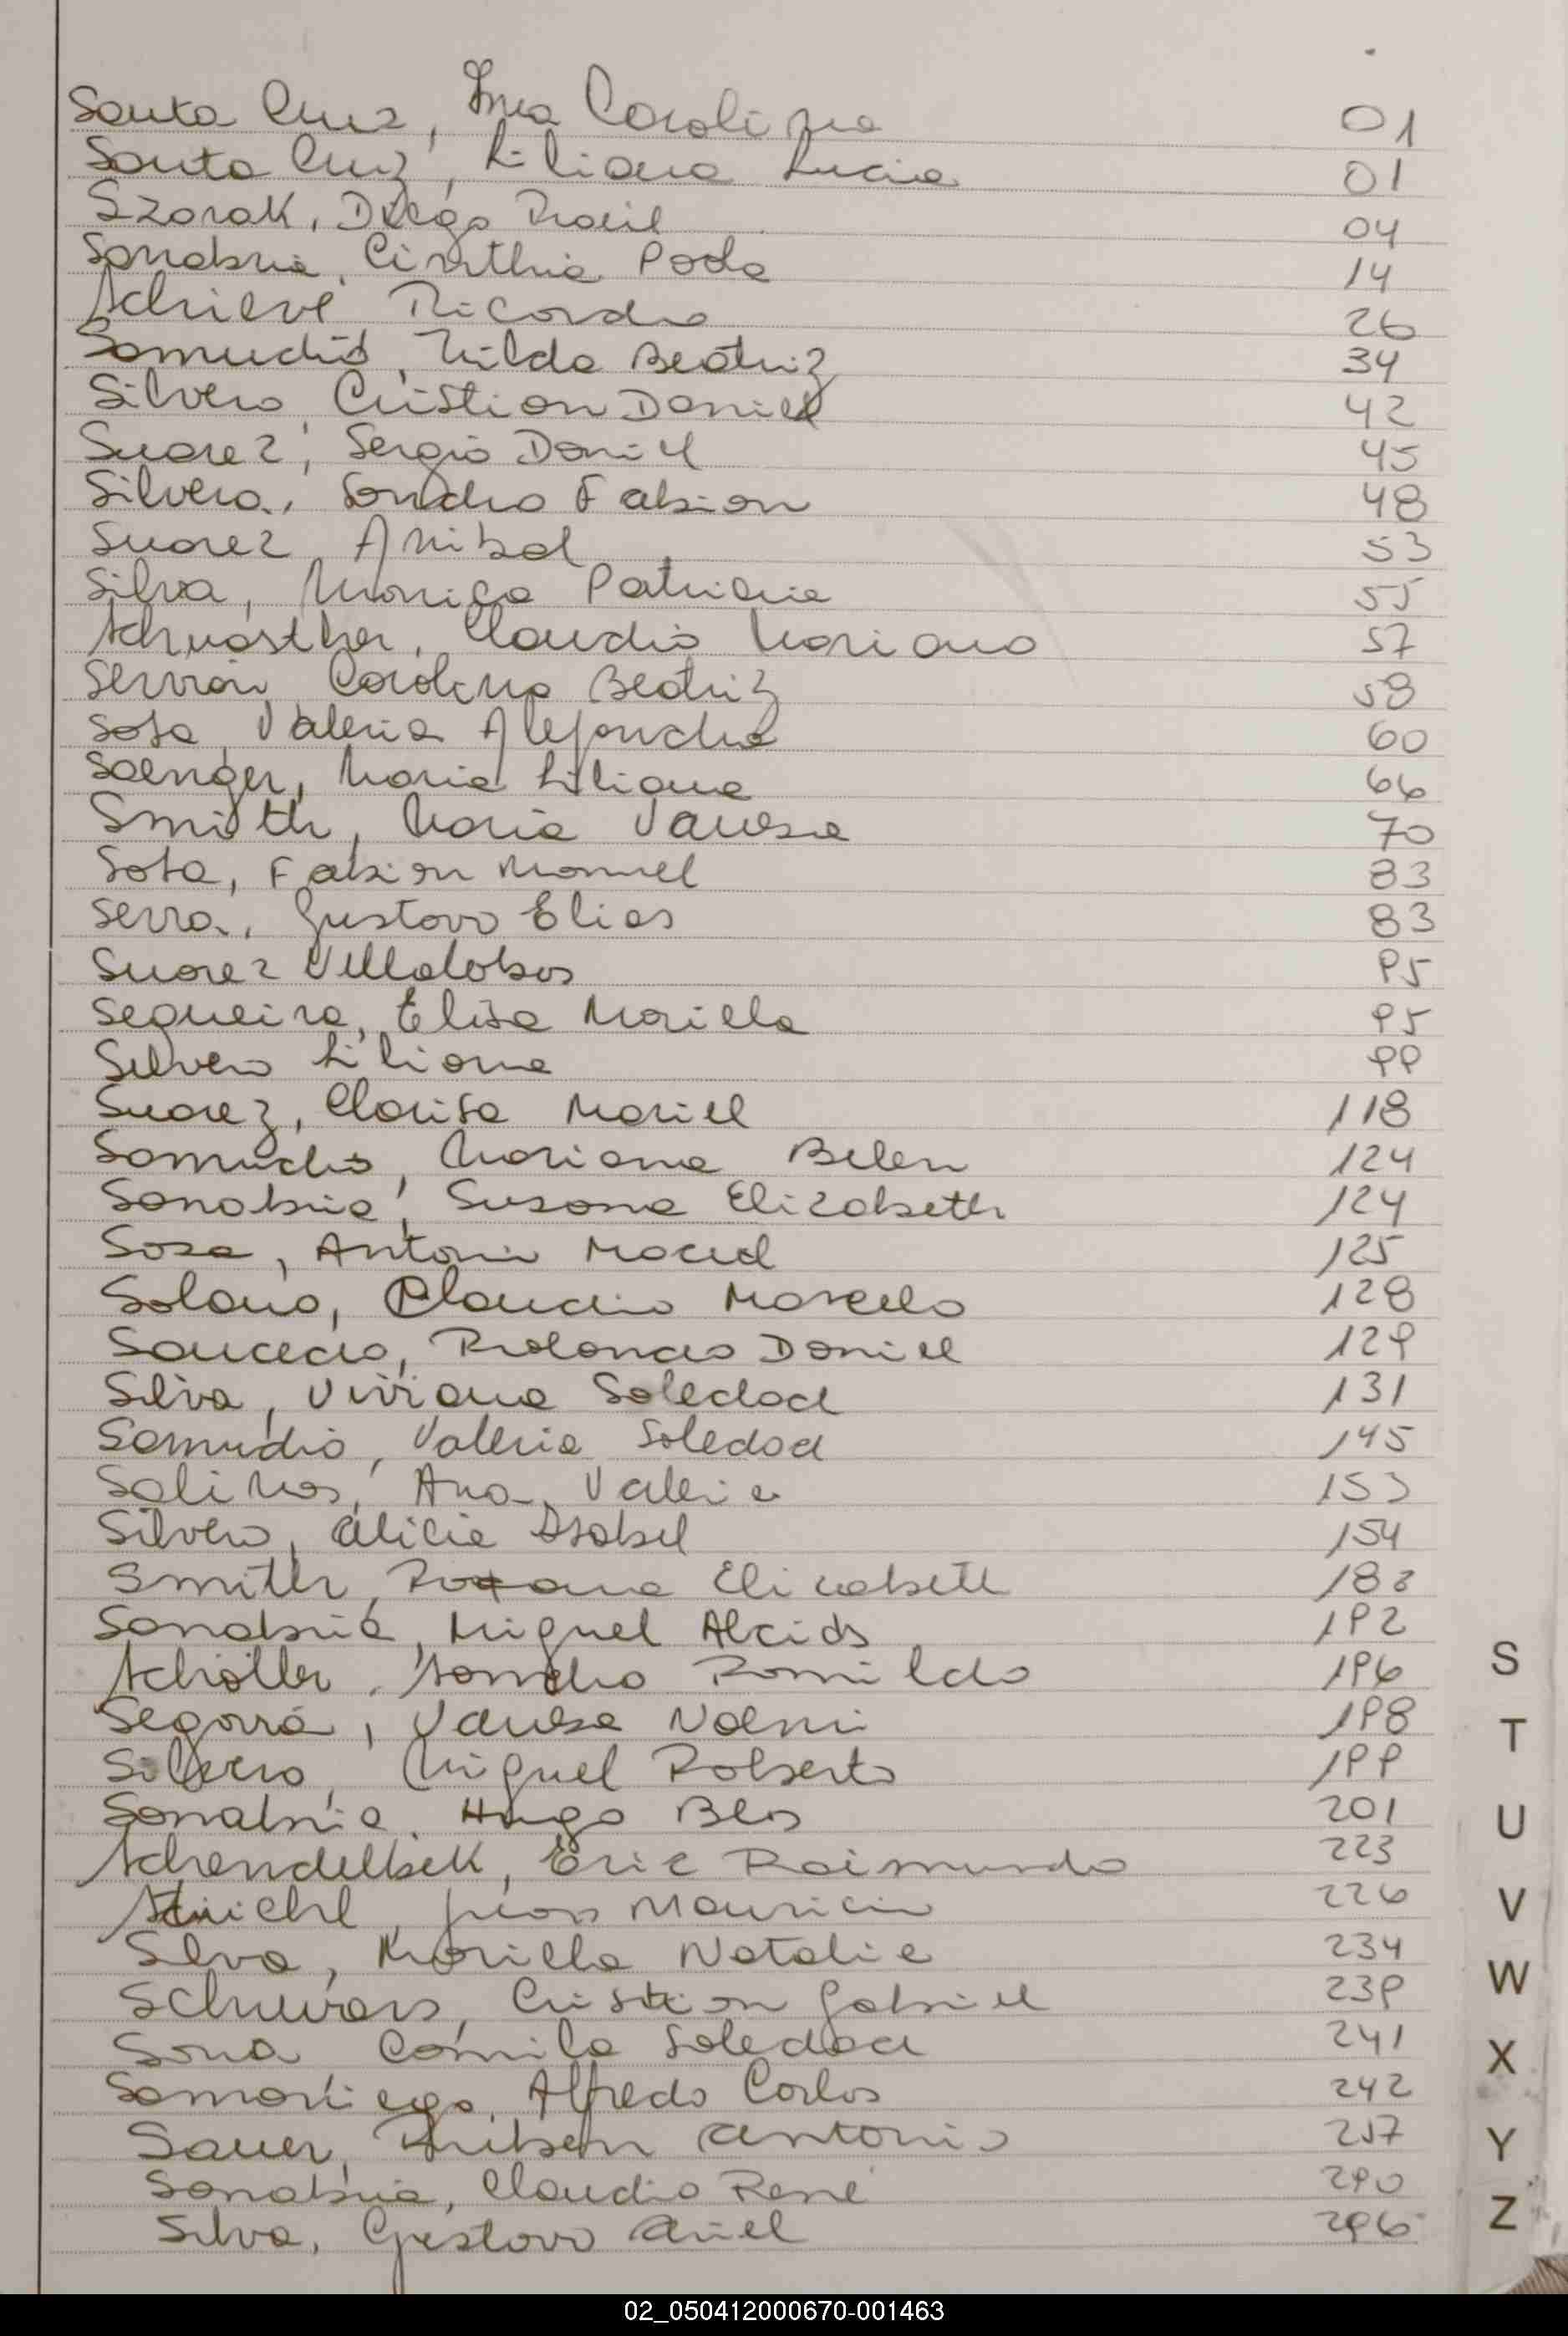 Santa Cruz, Ana Carolina 01
Santa Cruz, Liliana Lucia 01
Szorak, Diego Raul 04
Sanabria, Cinthia Paola 14
Schieve Ricardo 26
Samudio, Hilda Beatriz 34
Silvero Cristian Daniel 42
Suarez, Sergio Daniel 45
Silvera, Sandro Fabian 48
Suarez Anibal 53
Silva, Monica Patricia 55
Claudio Mariano 57
Servian Carolina Beatriz 58
Sosa Valeria Alejandra 60
Saenger, Maria Liliana 66
Smith, Maria Vanesa 70
Sosa, Fabian Manuel 83
Serra, Gustavo Elias 83
Suarez Villalobos 95
Sequeira, Elisa Mariela 95
Silvero Liliana 99
Suarez, Clarisa Mariel 118
Samudio, Mariana Belen 124
Sanabria, Susana Elizabeth 124
Sosa, Antonio Maciel 125
Solano, Claudio Marcelo 128
Saucedo, Rolando Daniel 129
Silva, Viviana Soledad 131
Samudio, Valeria Soledad 145
Salinas, Ana Valeria 153
Silvero, Alicia Isabel 154
Smith, Roxana Elizabeth
Sanabria, Miguel Alcides 192
Schöller, Sandro Romildo 196
Segovia, Vanesa Noemi 198
Silvero, Miguel Roberto 199
Sanabria, Hugo Blas 201
Schendelbek, Eric Raimundo 223
Juan Mauricio 226
Silva, Mariela Natalia 234
Cristian Gabriel 239
Soria Camila Soledad 241
Samaniego, Alfredo Carlos 242
Sauer, Ruben Antonio 257
Sanabria, Claudio René 290
Silva, Gustavo Ariel 296
S
T
U
V
W
X
Y
Z
02_050412000670-001463